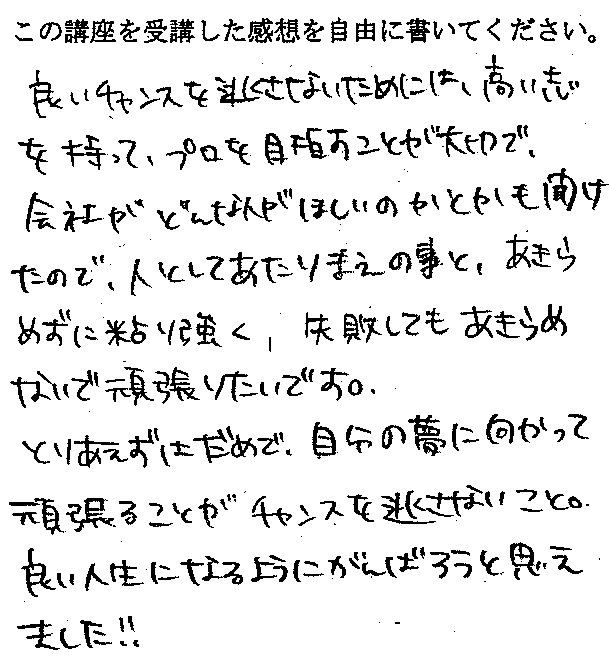 この講座を受講した感想を自由に書いてください。
良いチャンスを逃くさせないためには、高い志
を持って、プロを目指すことが大切で、
会社がどんな人がほしいのかとかも聞け
たので、人としてあたりまえの事と、あきら
めずに粘り強く、失敗してもあきらめ
ないで頑張りたいです。
とりあえずはだめで、自分の夢に向かって
頑張ることがチャンスを逃くさせないこと。
良い人生になるようにがんばろうと思え
ました!!